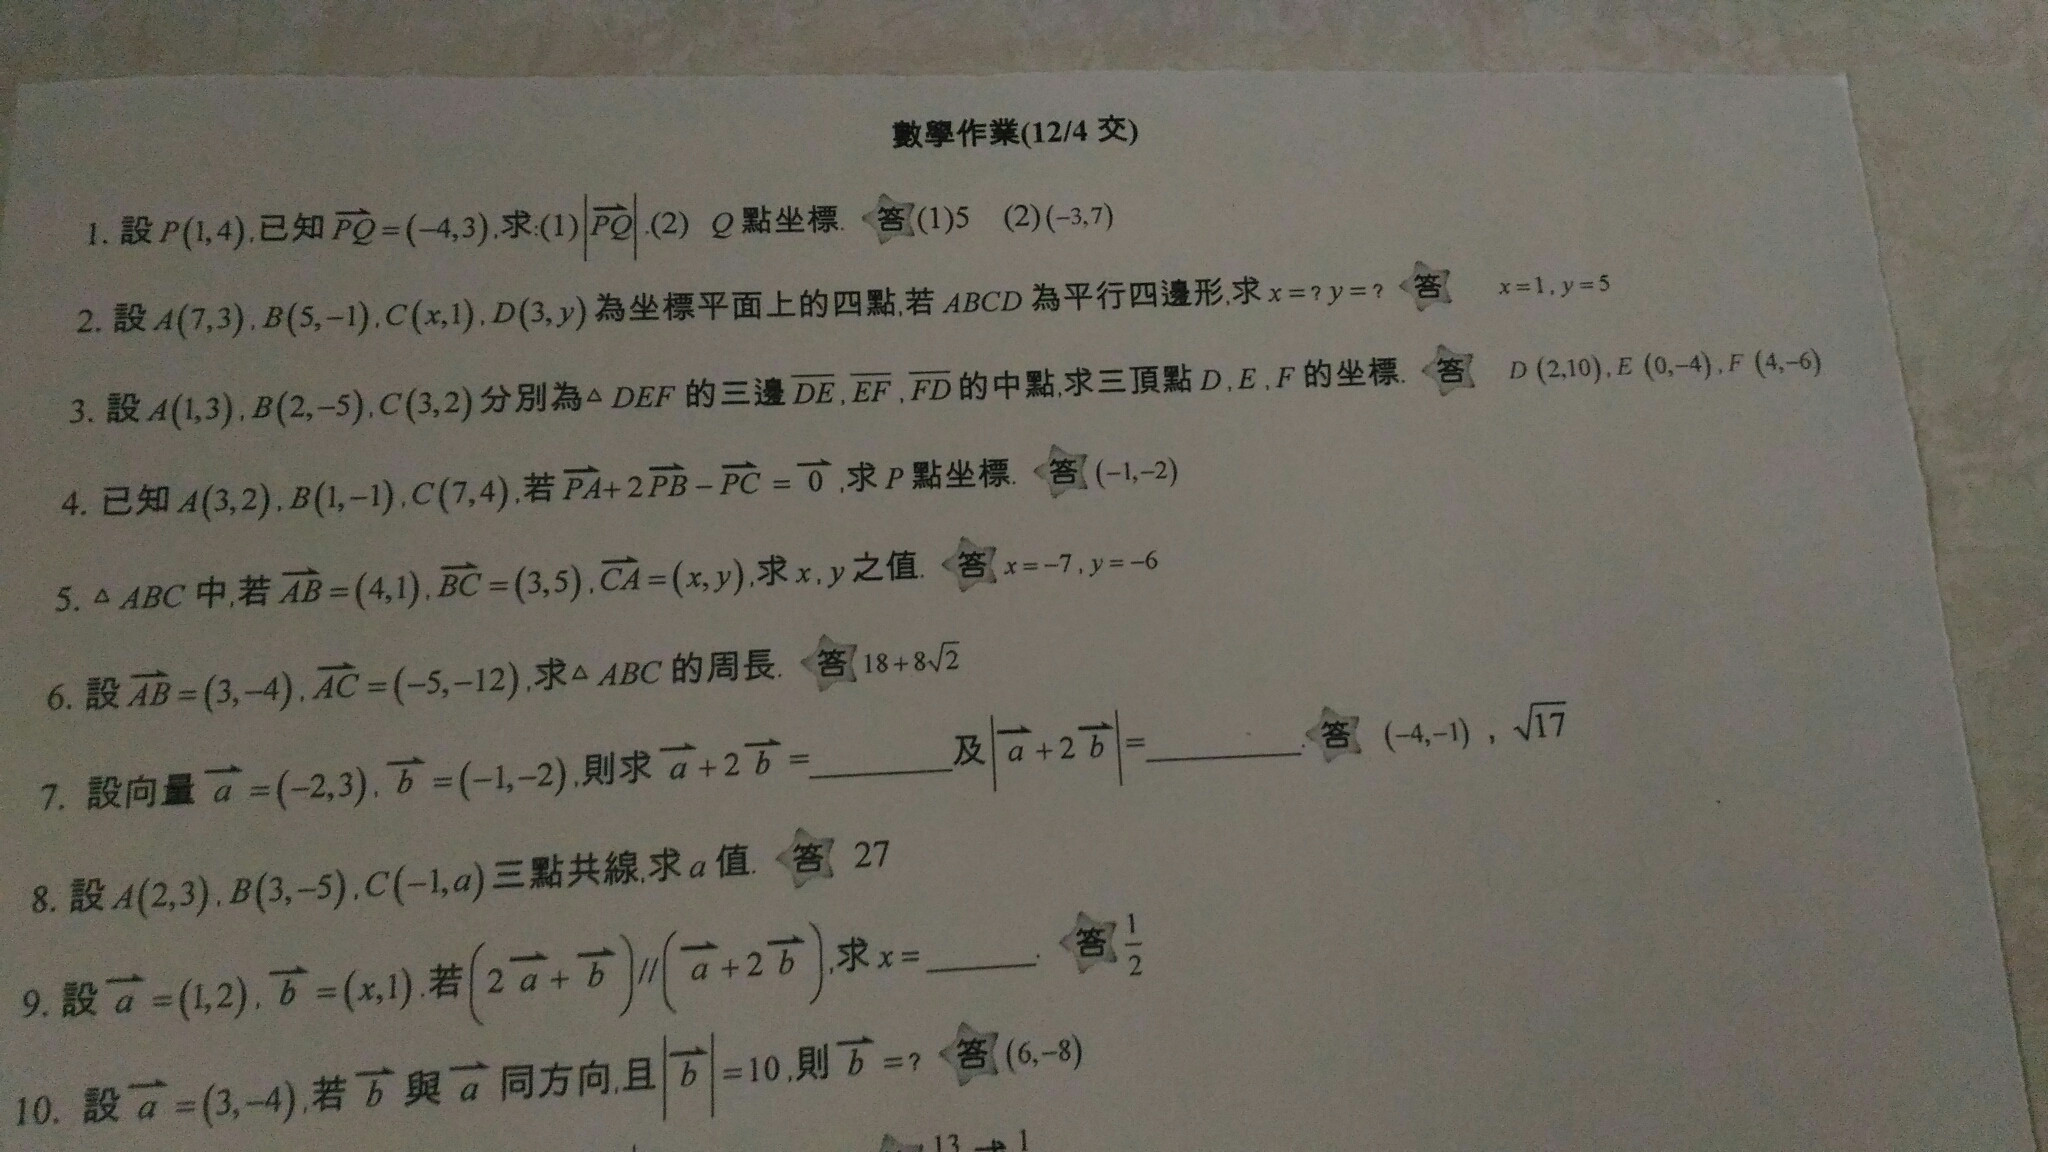 數學作業(12/4 交)
1. 設 P(1,4),已知 $\overrightarrow{PQ}$=(−4,3),求:(1)|$\overrightarrow{PQ}$|.(2) Q 點坐標. 答 (1)5 (2)(−3,7)
2. 設 A(7,3), B(5,−1), C(x,1), D(3,y) 為坐標平面上的四點,若 ABCD 為平行四邊形,求 x=? y=? 答 x=1, y=5
3. 設 A(1,3), B(2,−5), C(3,2) 分別為△ DEF 的三邊 $\overline{DE}$, $\overline{EF}$, $\overline{FD}$ 的中點,求三頂點 D, E, F 的坐標. 答 D (2,10), E (0,−4), F (4,−6)
4. 已知 A(3,2), B(1,−1), C(7,4),若 $\overrightarrow{PA}$+2$\overrightarrow{PB}$−$\overrightarrow{PC}$ = $\overrightarrow{0}$,求 P 點坐標. 答 (−1,−2)
5. △ ABC 中,若 $\overrightarrow{AB}$=(4,1), $\overrightarrow{BC}$=(3,5), $\overrightarrow{CA}$=(x,y),求 x, y 之值. 答 x=−7, y=−6
6. 設 $\overrightarrow{AB}$=(3,−4), $\overrightarrow{AC}$=(−5,−12),求△ ABC 的周長. 答 18+8√2
7. 設向量 $\overrightarrow{a}$=(−2,3), $\overrightarrow{b}$=(−1,−2),則求 $\overrightarrow{a}$+2$\overrightarrow{b}$=______及|$\overrightarrow{a}$+2$\overrightarrow{b}$|=______. 答 (−4,−1) , √17
8. 設 A(2,3), B(3,−5), C(−1,a) 三點共線,求 a 值. 答 27
9. 設 $\overrightarrow{a}$=(1,2), $\overrightarrow{b}$=(x,1).若(2$\overrightarrow{a}$+$\overrightarrow{b}$)//($\overrightarrow{a}$+2$\overrightarrow{b}$),求 x=______. 答 1/2
10. 設 $\overrightarrow{a}$=(3,−4),若 $\overrightarrow{b}$ 與 $\overrightarrow{a}$ 同方向,且|$\overrightarrow{b}$|=10,則 $\overrightarrow{b}$=? 答 (6,−8)